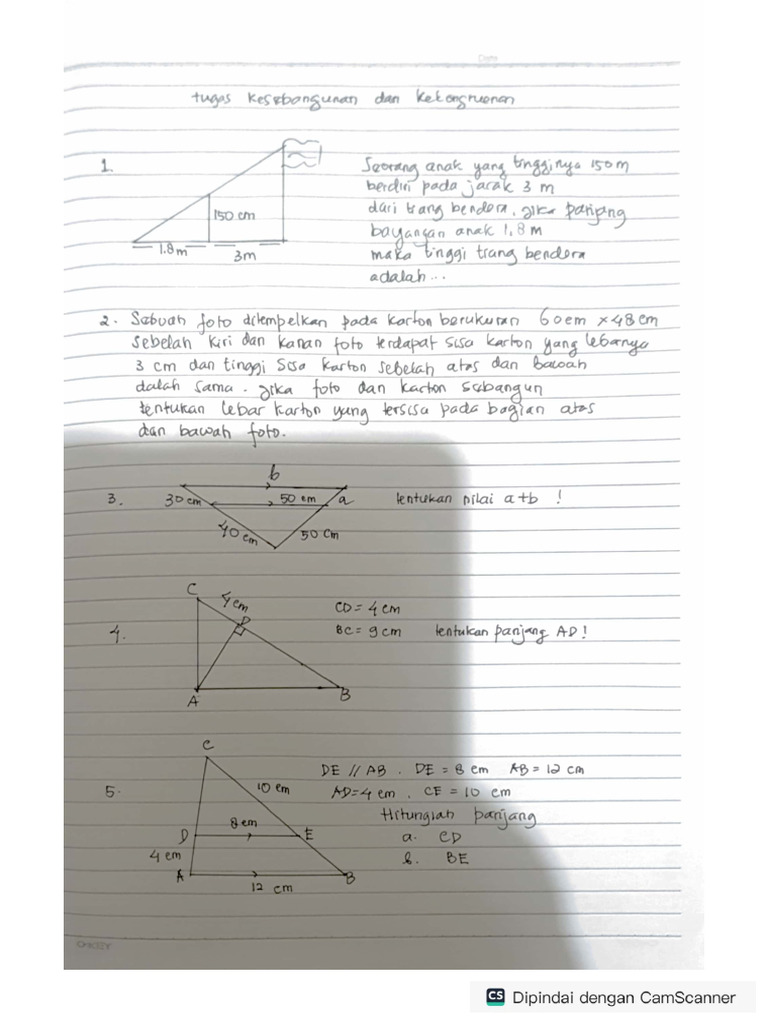 Date
tugas kesebangunan dan kekongruenan
1.
150 cm
1.8m
3m
Seorang anak yang tingginya 150m
berdiri pada jarak 3 m
dari tiang bendera, jika panjang
bayangan anak 1,8 m
maka tinggi tiang bendera
adalah...
2. Sebuah foto ditempelkan pada karton berukuran 60cm x 48cm
sebelah kiri dan kanan foto terdapat sisa karton yang lebarnya
3 cm dan tinggi sisa karton sebelah atas dan bawah
dalah sama. jika foto dan karton sebangun
tentukan lebar karton yang tersisa pada bagian atas
dan bawah foto.
3.
b
30 cm
50 cm
a
40 cm
50 cm
tentukan nilai a+b !
4.
C
4 cm
D
A
B
CD = 4 cm
BC = 9 cm tentukan panjang AD!
5.
C
10 cm
D
8 cm
E
4 cm
A
12 cm
B
DE // AB . DE = 8 cm AB = 12 cm
AD=4 cm . CE = 10 cm
Hitunglah panjang
a. CD
b. BE
CS Dipindai dengan CamScanner